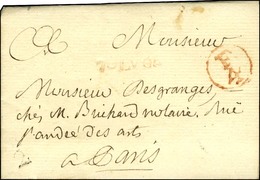 Monsieur
Monsieur Desgranges
chés M. Brichard notaire, Rüe
s.t andré des arts
a Paris